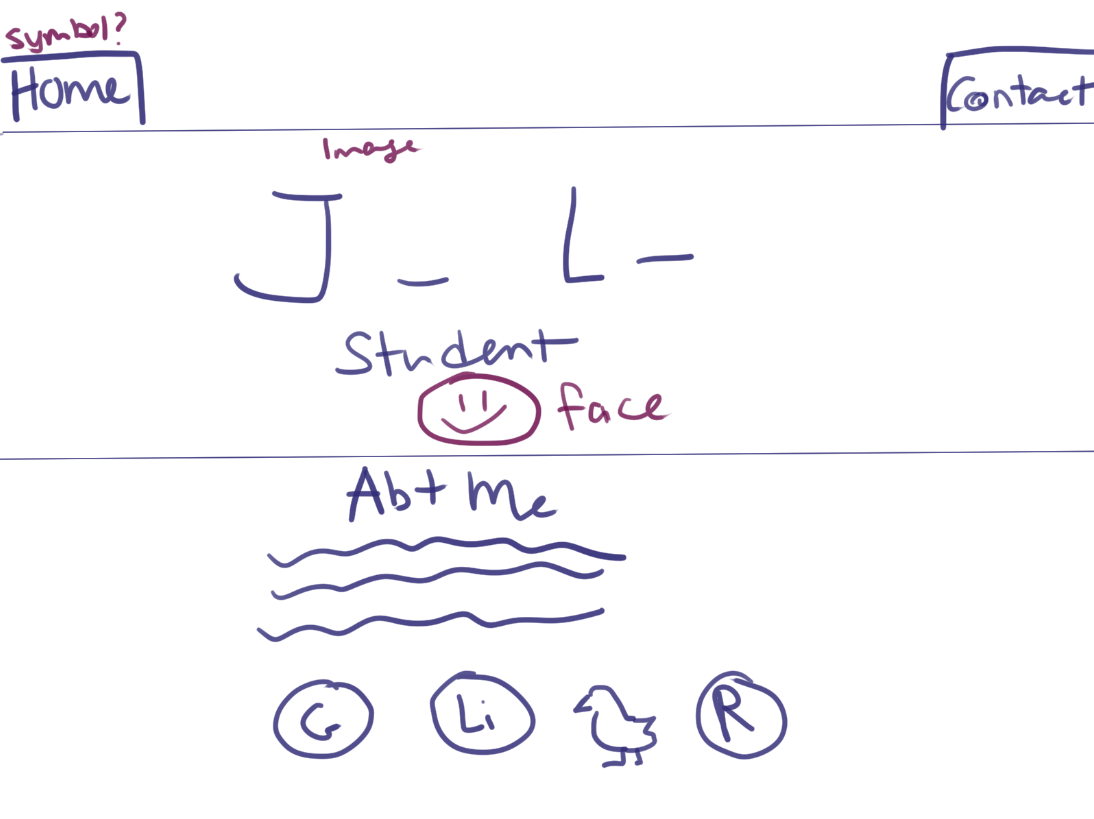 symbol?
Home
Contact
Image
J _ L _
Student
face
Abt Me
G Li R